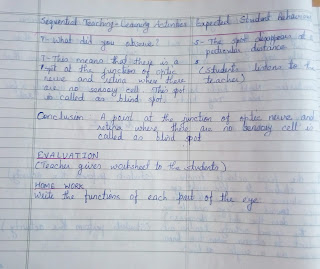 Sequential Teaching-Learning Activities
Expected Student Behaviour
T- What did you observe?
T- This means that there is a
spot at the junction of optic
nerve and retina where there
are no sensory cell. This spot
is called as blind spot.
S- The spot disappears at a
particular distance.
(Students listens to the
teacher)
Conclusion: A point at the junction of optic nerve and
retina where there are no sensory cell is
called as blind spot
EVALUATION
(Teacher gives worksheet to the students)
HOME WORK
Write the functions of each part of the eye